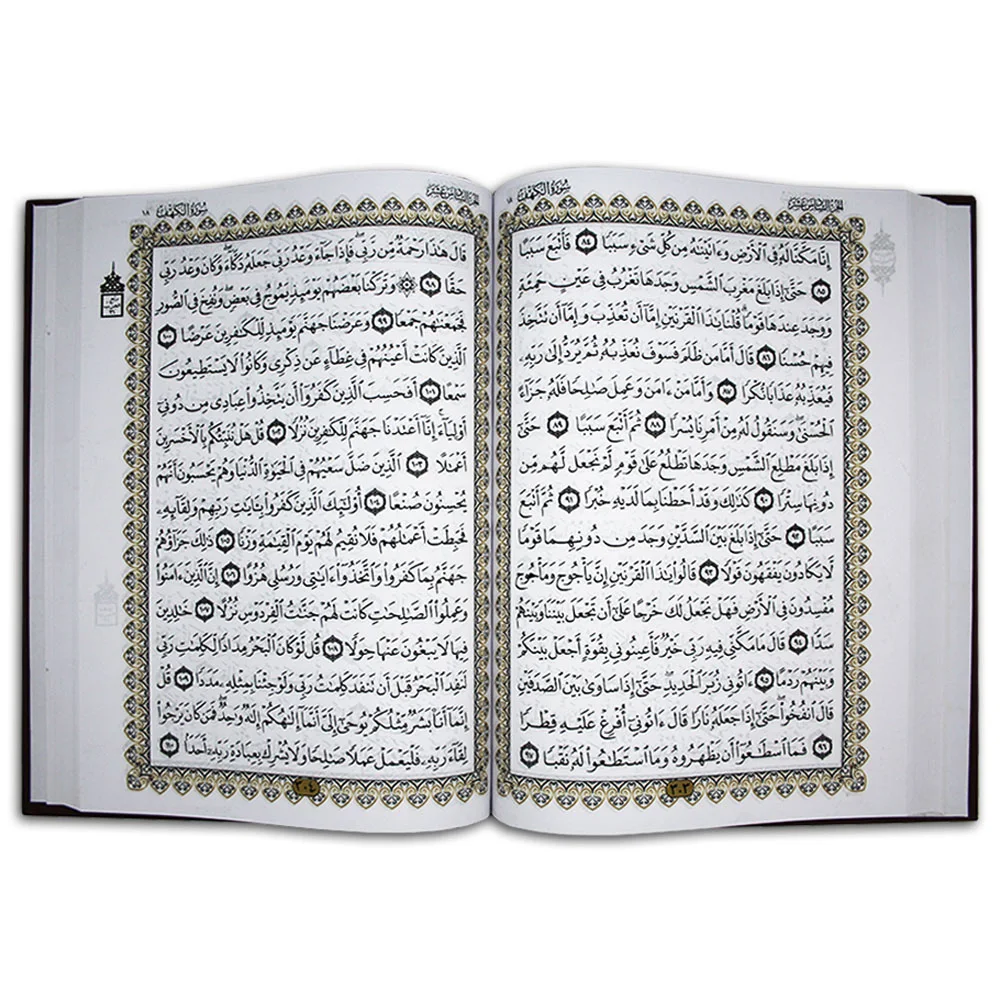 سُورَةُ الكَهْفِ ١٨
الجزء السادس عشر
إِنَّا مَكَّنَّا لَهُۥ فِى ٱلْأَرْضِ وَءَاتَيْنَٰهُ مِن كُلِّ شَىْءٍ سَبَبًا ٨٤ فَأَتْبَعَ سَبَبًا
٨٥ حَتَّىٰٓ إِذَا بَلَغَ مَغْرِبَ ٱلشَّمْسِ وَجَدَهَا تَغْرُبُ فِى عَيْنٍ حَمِئَةٍ
وَوَجَدَ عِندَهَا قَوْمًا ۗ قُلْنَا يَٰذَا ٱلْقَرْنَيْنِ إِمَّآ أَن تُعَذِّبَ وَإِمَّآ أَن تَتَّخِذَ
فِيهِمْ حُسْنًا ٨٦ قَالَ أَمَّا مَن ظَلَمَ فَسَوْفَ نُعَذِّبُهُۥ ثُمَّ يُرَدُّ إِلَىٰ رَبِّهِۦ
فَيُعَذِّبُهُۥ عَذَابًا نُّكْرًا ٨٧ وَأَمَّا مَنْ ءَامَنَ وَعَمِلَ صَٰلِحًا فَلَهُۥ جَزَآءً
ٱلْحُسْنَىٰ ۖ وَسَنَقُولُ لَهُۥ مِنْ أَمْرِنَا يُسْرًا ٨٨ ثُمَّ أَتْبَعَ سَبَبًا ٨٩ حَتَّىٰٓ
إِذَا بَلَغَ مَطْلِعَ ٱلشَّمْسِ وَجَدَهَا تَطْلُعُ عَلَىٰ قَوْمٍ لَّمْ نَجْعَل لَّهُم مِّن
دُونِهَا سِتْرًا ٩٠ كَذَٰلِكَ وَقَدْ أَحَطْنَا بِمَا لَدَيْهِ خُبْرًا ٩١ ثُمَّ أَتْبَعَ
سَبَبًا ٩٢ حَتَّىٰٓ إِذَا بَلَغَ بَيْنَ ٱلسَّدَّيْنِ وَجَدَ مِن دُونِهِمَا قَوْمًا
لَّا يَكَادُونَ يَفْقَهُونَ قَوْلًا ٩٣ قَالُوا۟ يَٰذَا ٱلْقَرْنَيْنِ إِنَّ يَأْجُوجَ وَمَأْجُوجَ
مُفْسِدُونَ فِى ٱلْأَرْضِ فَهَلْ نَجْعَلُ لَكَ خَرْجًا عَلَىٰٓ أَن تَجْعَلَ بَيْنَنَا وَبَيْنَهُمْ
سَدًّا ٩٤ قَالَ مَا مَكَّنِّى فِيهِ رَبِّى خَيْرٌ فَأَعِينُونِى بِقُوَّةٍ أَجْعَلْ بَيْنَكُمْ
وَبَيْنَهُمْ رَدْمًا ٩٥ ءَاتُونِى زُبَرَ ٱلْحَدِيدِ ۖ حَتَّىٰٓ إِذَا سَاوَىٰ بَيْنَ ٱلصَّدَفَيْنِ
قَالَ ٱنفُخُوا۟ ۖ حَتَّىٰٓ إِذَا جَعَلَهُۥ نَارًا قَالَ ءَاتُونِىٓ أُفْرِغْ عَلَيْهِ قِطْرًا
٩٦ فَمَا ٱسْطَٰعُوٓا۟ أَن يَظْهَرُوهُ وَمَا ٱسْتَطَٰعُوا۟ لَهُۥ نَقْبًا ٩٧
٣٠٣
سُورَةُ الكَهْفِ ١٨
الجزء السادس عشر
قَالَ هَٰذَا رَحْمَةٌ مِّن رَّبِّى ۖ فَإِذَا جَآءَ وَعْدُ رَبِّى جَعَلَهُۥ دَكَّآءَ ۖ وَكَانَ وَعْدُ رَبِّى
حَقًّا ٩٨ ۞ وَتَرَكْنَا بَعْضَهُمْ يَوْمَئِذٍ يَمُوجُ فِى بَعْضٍ ۖ وَنُفِخَ فِى ٱلصُّورِ
فَجَمَعْنَٰهُمْ جَمْعًا ٩٩ وَعَرَضْنَا جَهَنَّمَ يَوْمَئِذٍ لِّلْكَٰفِرِينَ عَرْضًا ١٠٠
ٱلَّذِينَ كَانَتْ أَعْيُنُهُمْ فِى غِطَآءٍ عَن ذِكْرِى وَكَانُوا۟ لَا يَسْتَطِيعُونَ
سَمْعًا ١٠١ أَفَحَسِبَ ٱلَّذِينَ كَفَرُوٓا۟ أَن يَتَّخِذُوا۟ عِبَادِى مِن دُونِىٓ
أَوْلِيَآءَ ۚ إِنَّآ أَعْتَدْنَا جَهَنَّمَ لِلْكَٰفِرِينَ نُزُلًا ١٠٢ قُلْ هَلْ نُنَبِّئُكُم بِٱلْأَخْسَرِينَ
أَعْمَٰلًا ١٠٣ ٱلَّذِينَ ضَلَّ سَعْيُهُمْ فِى ٱلْحَيَوٰةِ ٱلدُّنْيَا وَهُمْ يَحْسَبُونَ أَنَّهُمْ
يُحْسِنُونَ صُنْعًا ١٠٤ أُو۟لَٰٓئِكَ ٱلَّذِينَ كَفَرُوا۟ بِـَٔايَٰتِ رَبِّهِمْ وَلِقَآئِهِۦ
فَحَبِطَتْ أَعْمَٰلُهُمْ فَلَا نُقِيمُ لَهُمْ يَوْمَ ٱلْقِيَٰمَةِ وَزْنًا ١٠٥ ذَٰلِكَ جَزَآؤُهُمْ
جَهَنَّمُ بِمَا كَفَرُوا۟ وَٱتَّخَذُوٓا۟ ءَايَٰتِى وَرُسُلِى هُزُوًا ١٠٦ إِنَّ ٱلَّذِينَ ءَامَنُوا۟
وَعَمِلُوا۟ ٱلصَّٰلِحَٰتِ كَانَتْ لَهُمْ جَنَّٰتُ ٱلْفِرْدَوْسِ نُزُلًا ١٠٧ خَٰلِدِينَ
فِيهَا لَا يَبْغُونَ عَنْهَا حِوَلًا ١٠٨ قُل لَّوْ كَانَ ٱلْبَحْرُ مِدَادًا لِّكَلِمَٰتِ رَبِّى
لَنَفِدَ ٱلْبَحْرُ قَبْلَ أَن تَنفَدَ كَلِمَٰتُ رَبِّى وَلَوْ جِئْنَا بِمِثْلِهِۦ مَدَدًا ١٠٩ قُلْ
إِنَّمَآ أَنَا۠ بَشَرٌ مِّثْلُكُمْ يُوحَىٰٓ إِلَىَّ أَنَّمَآ إِلَٰهُكُمْ إِلَٰهٌ وَٰحِدٌ ۖ فَمَن كَانَ يَرْجُوا۟
لِقَآءَ رَبِّهِۦ فَلْيَعْمَلْ عَمَلًا صَٰلِحًا وَلَا يُشْرِكْ بِعِبَادَةِ رَبِّهِۦٓ أَحَدًۢا ١١٠
٣٠٤